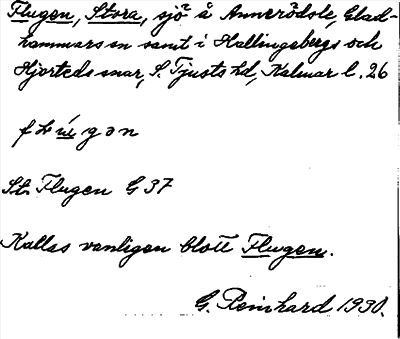 Flugen, Stora, sjö å Annerödde, Glad-
hammars sn samt i Hallingebergs och
Hjorteds snar, S. Tjusts hd, Kalmar l. 26
St. Flugen G 37
Kallas vanligen blott Flugen.
G. Reinhard 1930.